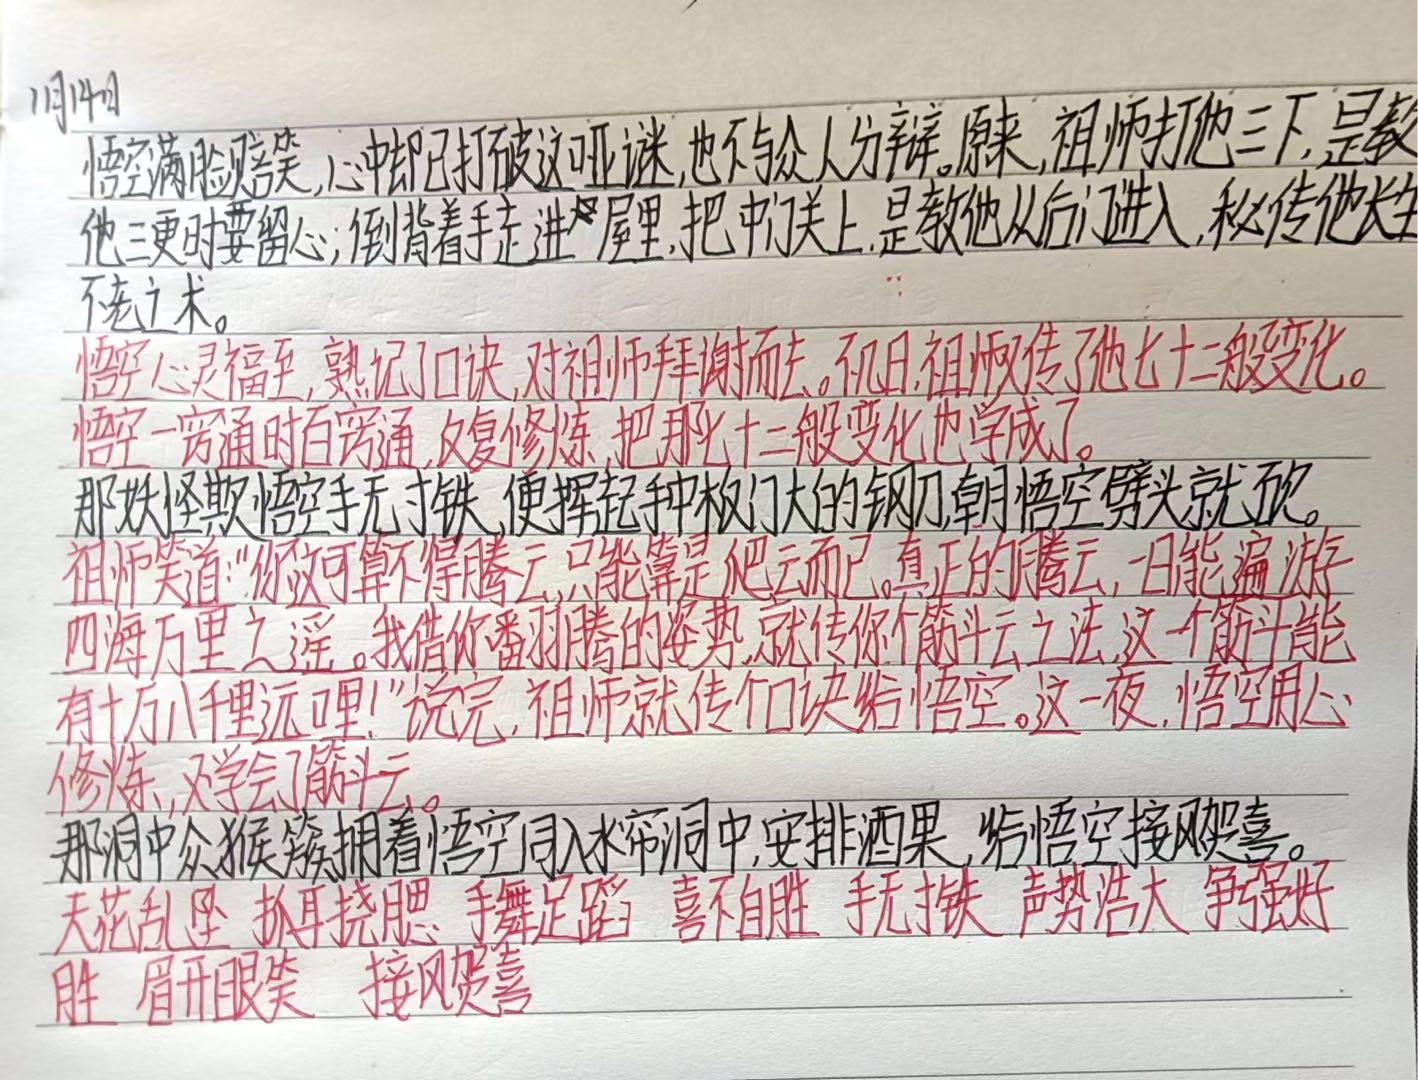 11月14日
悟空满脸赔笑,心中却已打破这哑谜,也不与众人分辩。原来,祖师打他三下,是教
他三更时要留心;倒背着手走进屋里,把中门关上,是教他从后门进入,秘传他长生
不老之术。
悟空心灵福至,熟记了口诀,对祖师拜谢而去。不几日,祖师又传了他七十二般变化。
悟空一窍通时百窍通,反复修炼,把那七十二般变化也学成了。
那妖怪欺悟空手无寸铁,便挥起手中板门大的钢刀,朝悟空劈头就砍。
祖师笑道:“你这可算不得腾云,只能算是爬云而已。真正的腾云,一日能遍游
四海万里之遥。我借你番羽腾的姿势,就传你个筋斗云之法,这一个筋斗能
有十万八千里远哩!”说完,祖师就传个口诀给悟空。这一夜,悟空用心
修炼,又学会了筋斗云。
那洞中众猴簇拥着悟空同入水帘洞中,安排酒果,给悟空接风贺喜。
天花乱坠 抓耳挠腮 手舞足蹈 喜不自胜 手无寸铁 声势浩大 争强好
胜 眉开眼笑 接风贺喜